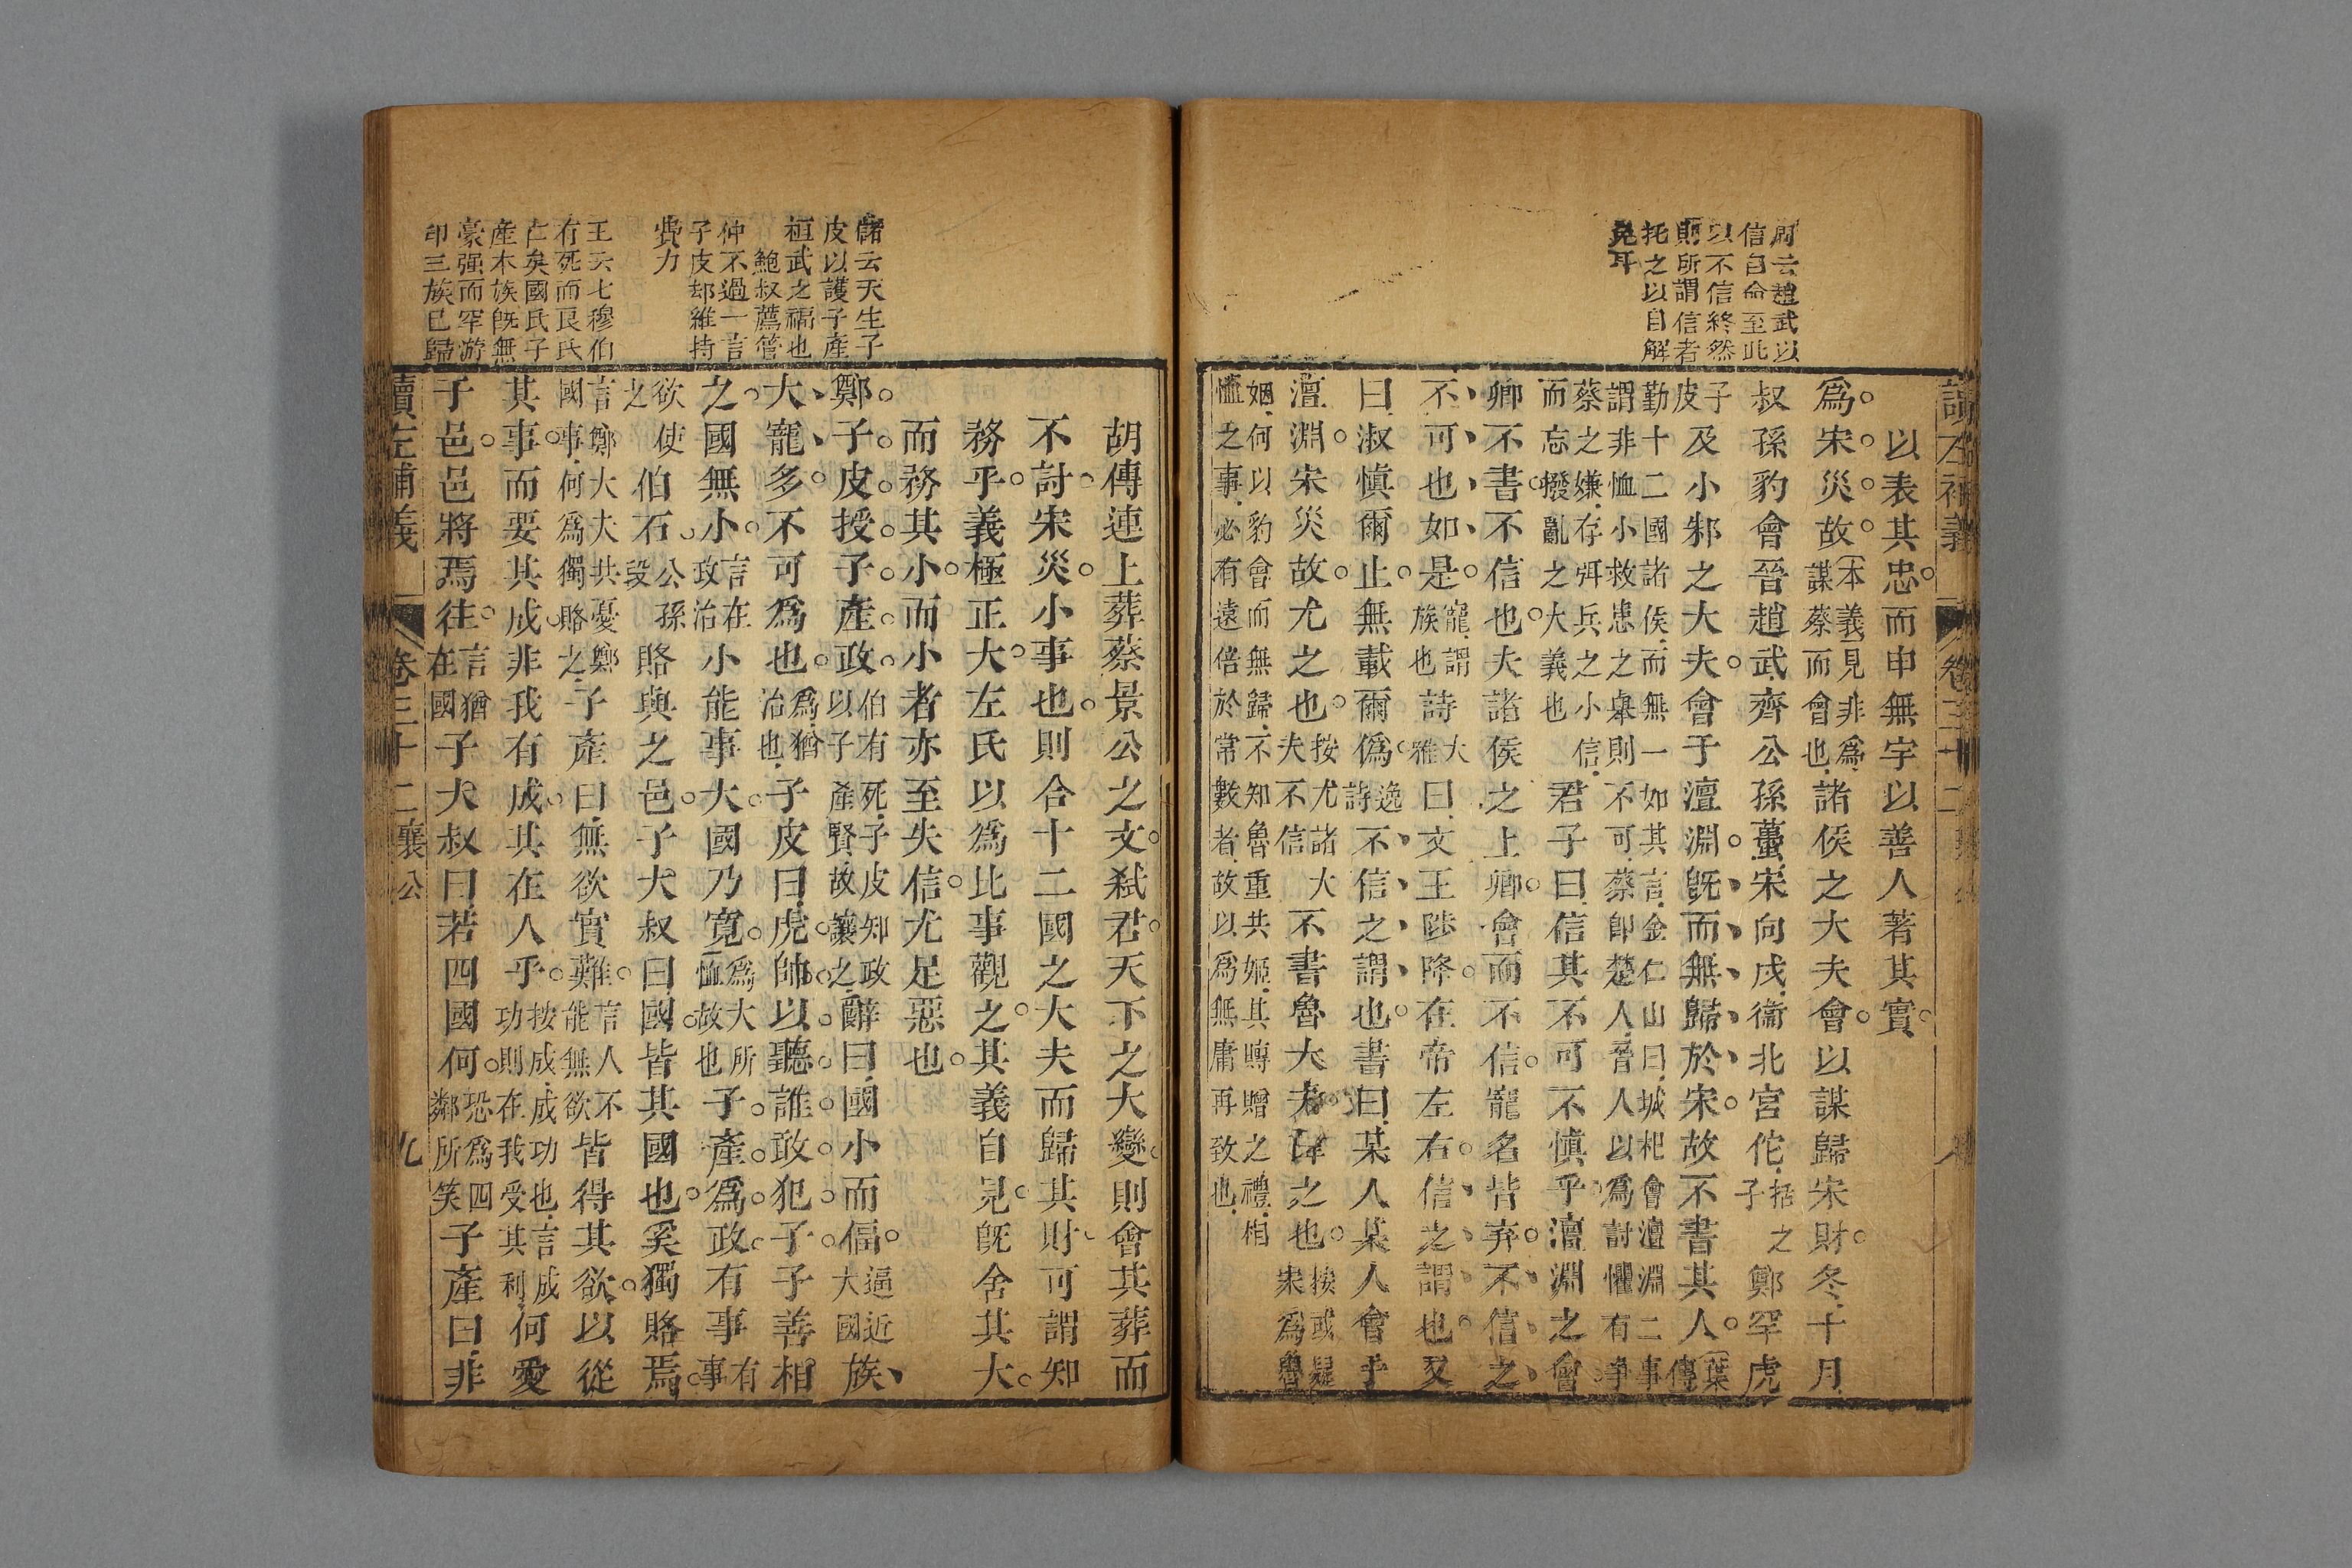 讀左補義
卷三十二
周云趙武以
信自命至此
以不信終然
則所謂信者
托之以自解
免耳
以表其忠而申無宇以善人著其實
爲宋災故本義見非爲謀蔡而會也諸侯之大夫會以謀歸宋財冬十月
叔孫豹會晉趙武齊公孫蠆宋向戌衞北宮佗括之子鄭罕虎
子皮及小邾之大夫會于澶淵旣而無歸於宋故不書其人葉傳
勤十二國諸侯而無一如其言金仁山曰城杞會澶淵二事
謂非恤小救患之舉則不可蔡卽楚人晉人以爲討懼有爭
蔡之嫌存弭兵之小信
而忘撥亂之大義也君子曰信其不可不愼乎澶淵之會
卿不書不信也夫諸侯之上卿會而不信寵名皆弃不信之
不可也如是寵謂族也詩大雅曰文王陟降在帝左右信之謂也又
曰淑愼爾止無載爾僞逸詩不信之謂也書曰某人某人會于
澶淵宋災故尤之也按尤諸大夫不信不書魯大夫諱之也按或疑宋爲魯
姻何以豹會而無歸不知魯重共姬其賻贈之禮相
恤之事必有遠倍於常數者故以爲無庸再致也
儲云天生子
皮以護子產
桓武之福也
鮑叔薦管
仲不過一言
子皮却維持
費力
王云七穆伯
有死而良氏
亡矣國氏子
產本族旣無
豪强而罕游
印三族已歸
胡傳連上葬蔡景公之文弒君天下之大變則會其葬而
不討宋災小事也則合十二國之大夫而歸其財可謂知
務乎義極正大左氏以爲比事觀之其義自見旣舍其大
而務其小而小者亦至失信尤足惡也
鄭子皮授子產政伯有死子皮知政以子產賢故讓之辭曰國小而偪逼近大國族
大寵多不可爲也爲猶治也子皮曰虎帥以聽誰敢犯子子善相
之國無小言在政治小能事大國乃寬爲大所恤故也子產爲政有事有事
欲使之伯石公孫段賂與之邑子大叔曰國皆其國也奚獨賂焉
言鄭大夫共憂鄭國事何爲獨賂之子產曰無欲實難言人不能無欲皆得其欲以從
其事而要其成非我有成其在人乎按成成功也言成功則在我受其利何愛
子邑邑將焉往言猶在國子大叔曰若四國何恐爲四鄰所笑子產曰非
讀左補義
卷三十二襄公
九